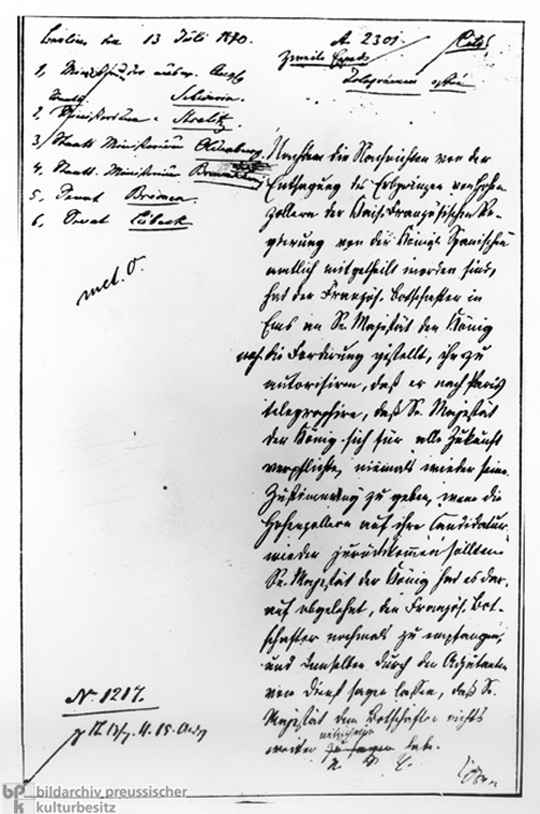 Berlin den 13 Juli 1870.
A. 2301
Cito!
Zweite Exped
Telegramm
1, Ministerium des ausw. Angel.
Schwerin.
2, Ministerium - Strelitz
3 Staats Ministerium Oldenburg.
4. Staats Ministerium Braunschweig
5. Senat Bremen.
6, Senat Lübeck
met. O.
Nachdem die Nachrichten von der
Entsagung des Erbprinzen von Hohen
zollern der Kais. Französischen Re-
gierung von der Königl. Spanischen
amtlich mitgetheilt worden sind,
hat der Französ. Botschafter in
Ems an Se. Majestät den König
noch die Forderung gestellt, ihn zu
autorisiren, daß er nach Paris
telegraphire, daß Se. Majestät
der König sich für alle Zukunft
verpflichte, niemals wieder seine
Zustimmung zu geben, wenn die
Hohenzollern auf ihre Candidatur
wieder zurückkommen sollten.
Se. Majestät der König hat es dar-
auf abgelehnt, den Französ. Bot-
schafter nochmals zu empfangen,
und demselben durch den Adjutanten
vom Dienst sagen lassen, daß Se.
Majestät dem Botschafter nichts
mitzutheilen
weiter zu sagen habe.
N. 1217.
bildarchiv preussischer
kulturbesitz
bp
k